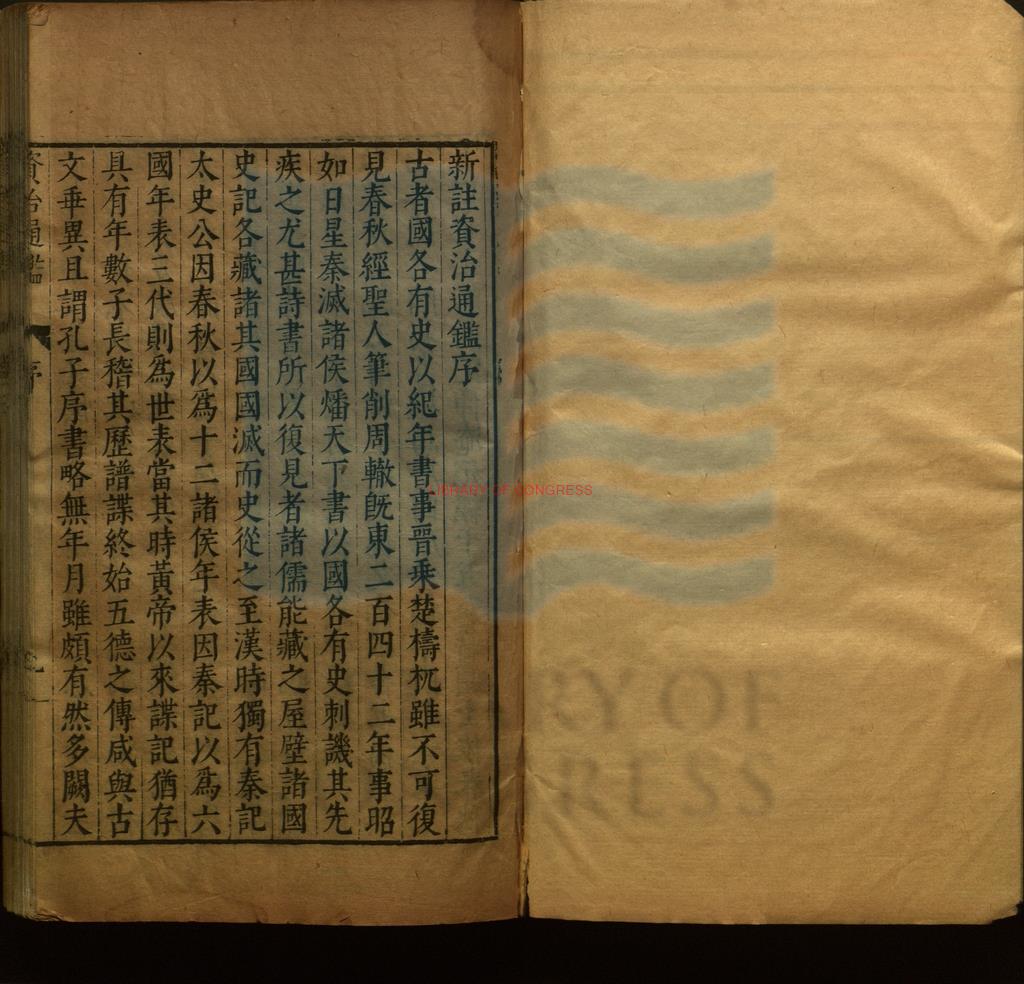 新註資治通鑑序
古者國各有史以紀年書事晉乘楚檮杌雖不可復
見春秋經聖人筆削周轍旣東二百四十二年事昭
如日星秦滅諸侯燔天下書以國各有史刺譏其先
疾之尤甚詩書所以復見者諸儒能藏之屋壁諸國
史記各藏諸其國國滅而史從之至漢時獨有秦記
太史公因春秋以爲十二諸侯年表因秦記以爲六
國年表三代則爲世表當其時黃帝以來諜記猶存
具有年數子長稽其歷譜諜終始五德之傳咸與古
文乖異且謂孔子序書略無年月雖頗有然多闕夫
資治通鑑 序
LIBRARY OF CONGRESS